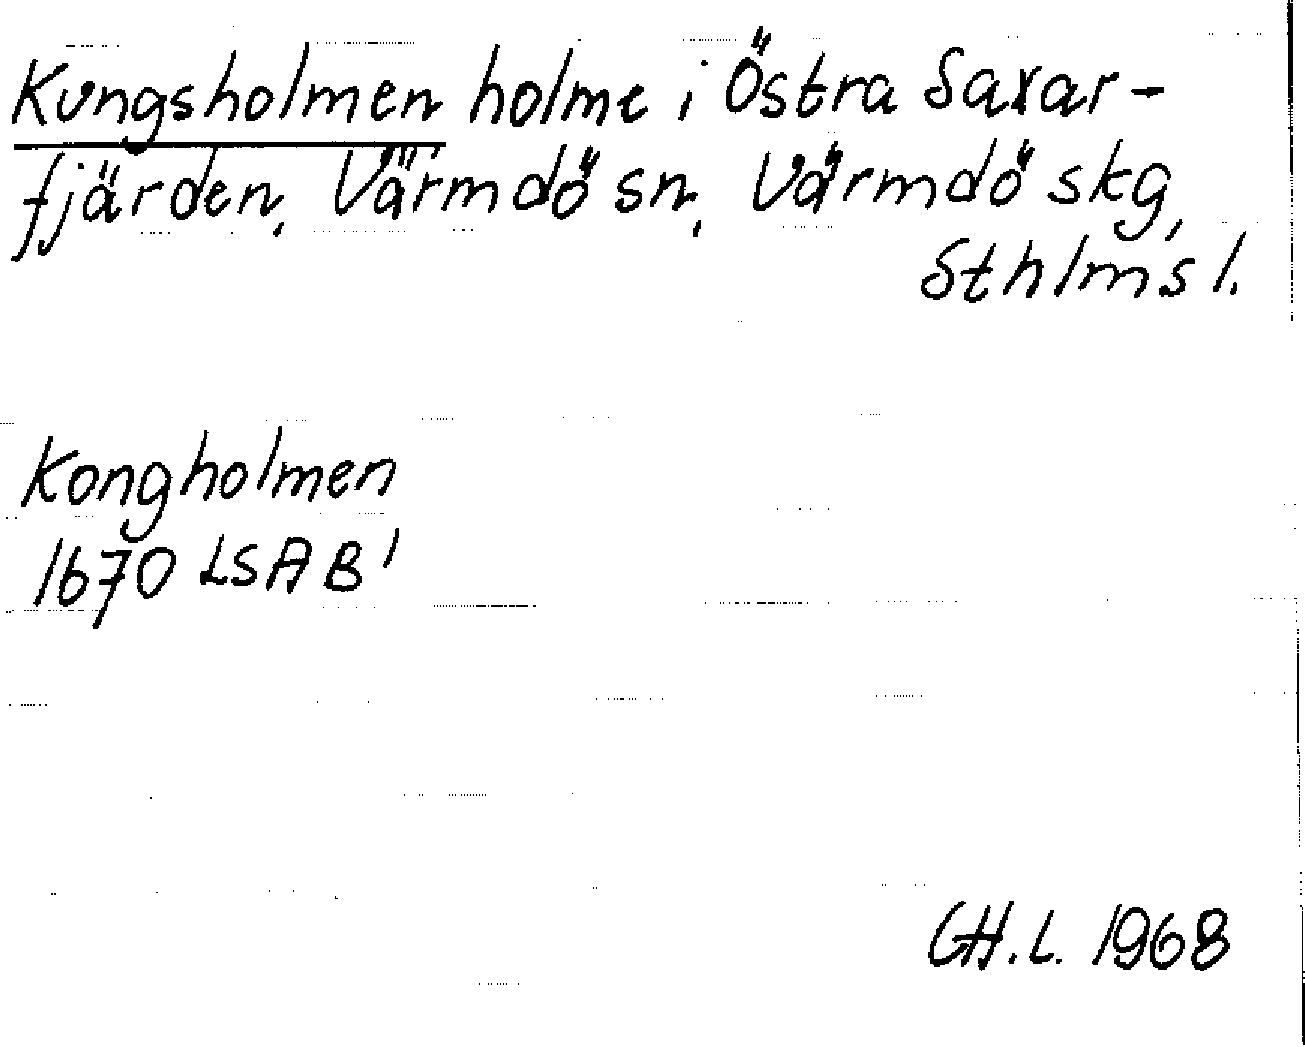 Kungsholmen holme i Östra Saxar-
fjärden, Värmdö sn, Värmdö skg,
Sthlms l.
Kongholmen
1670 LSA B1
GH.L. 1968